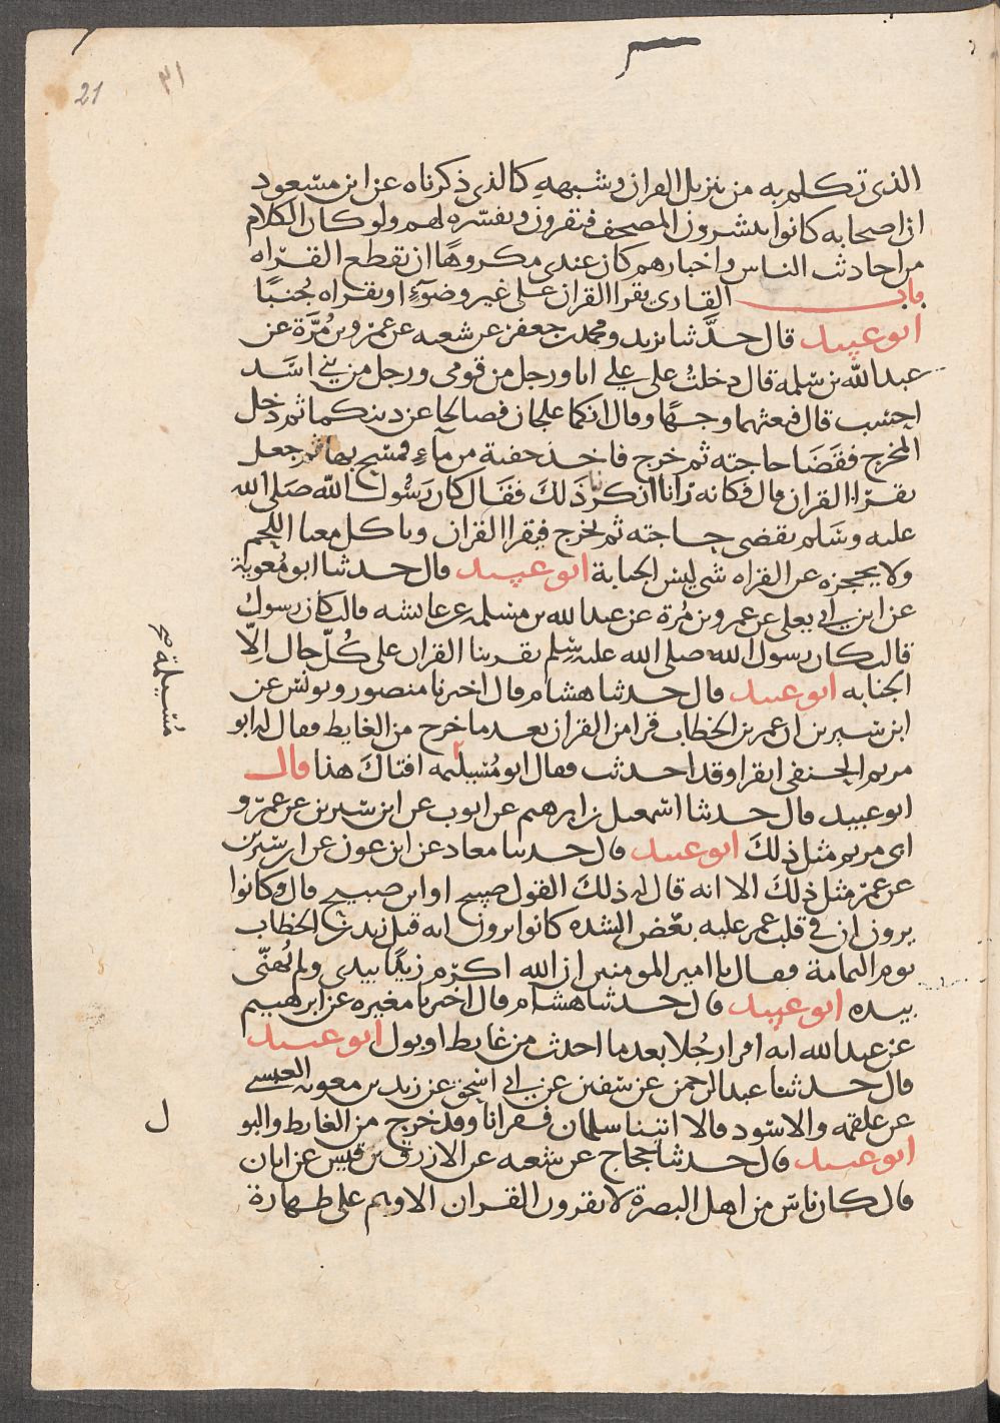 21
٣١
الذى تكلم به من تنزيل القران وشبهه كالذى ذكرناه عن ابن مسعود
ان اصحابه كانوا ينشرون المصحف فيقرون ويفسره لهم ولو كان الكلام
من احاديث الناس واخبارهم كان عندى مكروها ان تقطع القراه
باب القارى يقرا القران على غير وضوء او يقراه جنبا
ابو عبيد قال حدثنا يزيد ومحمد بن جعفر عن شعبه عن عمرو بن مرة عن
عبد الله بن سلمه قال دخلت على علي انا ورجل من قومى ورجل من بني اسد
احسب قال فبعثهما وجها وقال انكما علجان فعالجا عن دينكما ثم دخل
المخرج فقضا حاجته ثم خرج فاخذ حفنة من ماء فمسح بها ثم جعل
يقرا القران قال فكانه رآنا انكرنا ذلك فقال كان رسول الله صلى الله
عليه وسلم يقضى حاجته ثم يخرج فيقرا القران وياكل معنا اللحم
ولا يحجزه عن القراه شي ليس الجنابة ابو عبيد قال حدثنا ابو معوية
عن ابن ابي يعلى عن عمرو بن مرة عن عبد الله بن مسلمه عن عائشه قالت كان رسول
قالت كان رسول الله صلى الله عليه سلم يقرينا القران على كل حال الا
الجنابه ابو عبيد قال حدثنا هشام قال اخبرنا منصور ويونس عن
ابن سيرين ان عمر بن الخطاب قرا من القران بعد ما خرج من الغايط فقال له ابو
مريم الحنفى اتقرا وقد احدثت فقال ابو مسيلمه افتاك هذا قال
ابو عبيد قال حدثنا اسمعيل بن ابرهيم عن ايوب عن ابن سيرين عن عمر و
ابى مريم مثل ذلك ابو عبيد قال حدثنا معاذ عن ابن عون عن ابن سيرين
عن عمر مثل ذلك الا انه قال له ذلك القول صبيح او ابن صبيح قال وكانوا
يرون ان في قلب عمر عليه بعض الشده كانوا يرون انه قتل زيد بن الخطاب
يوم اليمامة فقال يا امير المومنين ان الله اكرم زيدا بيدى ولم يهنى
بيده ابو عبيد قال حدثنا هشام قال اخبرنا مغيره عن ابرهيم
عن عبد الله انه اقرا رجلا بعد ما احدث من غايط او بول ابو عبيد
قال حدثنا عبد الرحمن عن سفين عن ابي اسحق عن زيد بن معوية العبسي
عن علقمه والاسود قالا اتينا سلمان فقرانا وقد خرج من الغايط والبو
ل
ابو عبيد قال حدثنا حجاج عن شعبه عن الازرق بن قيس عن ابان
قال كان ناس من اهل البصرة لا يقرون القران الا وهم على طهارة
مسيلمة صح